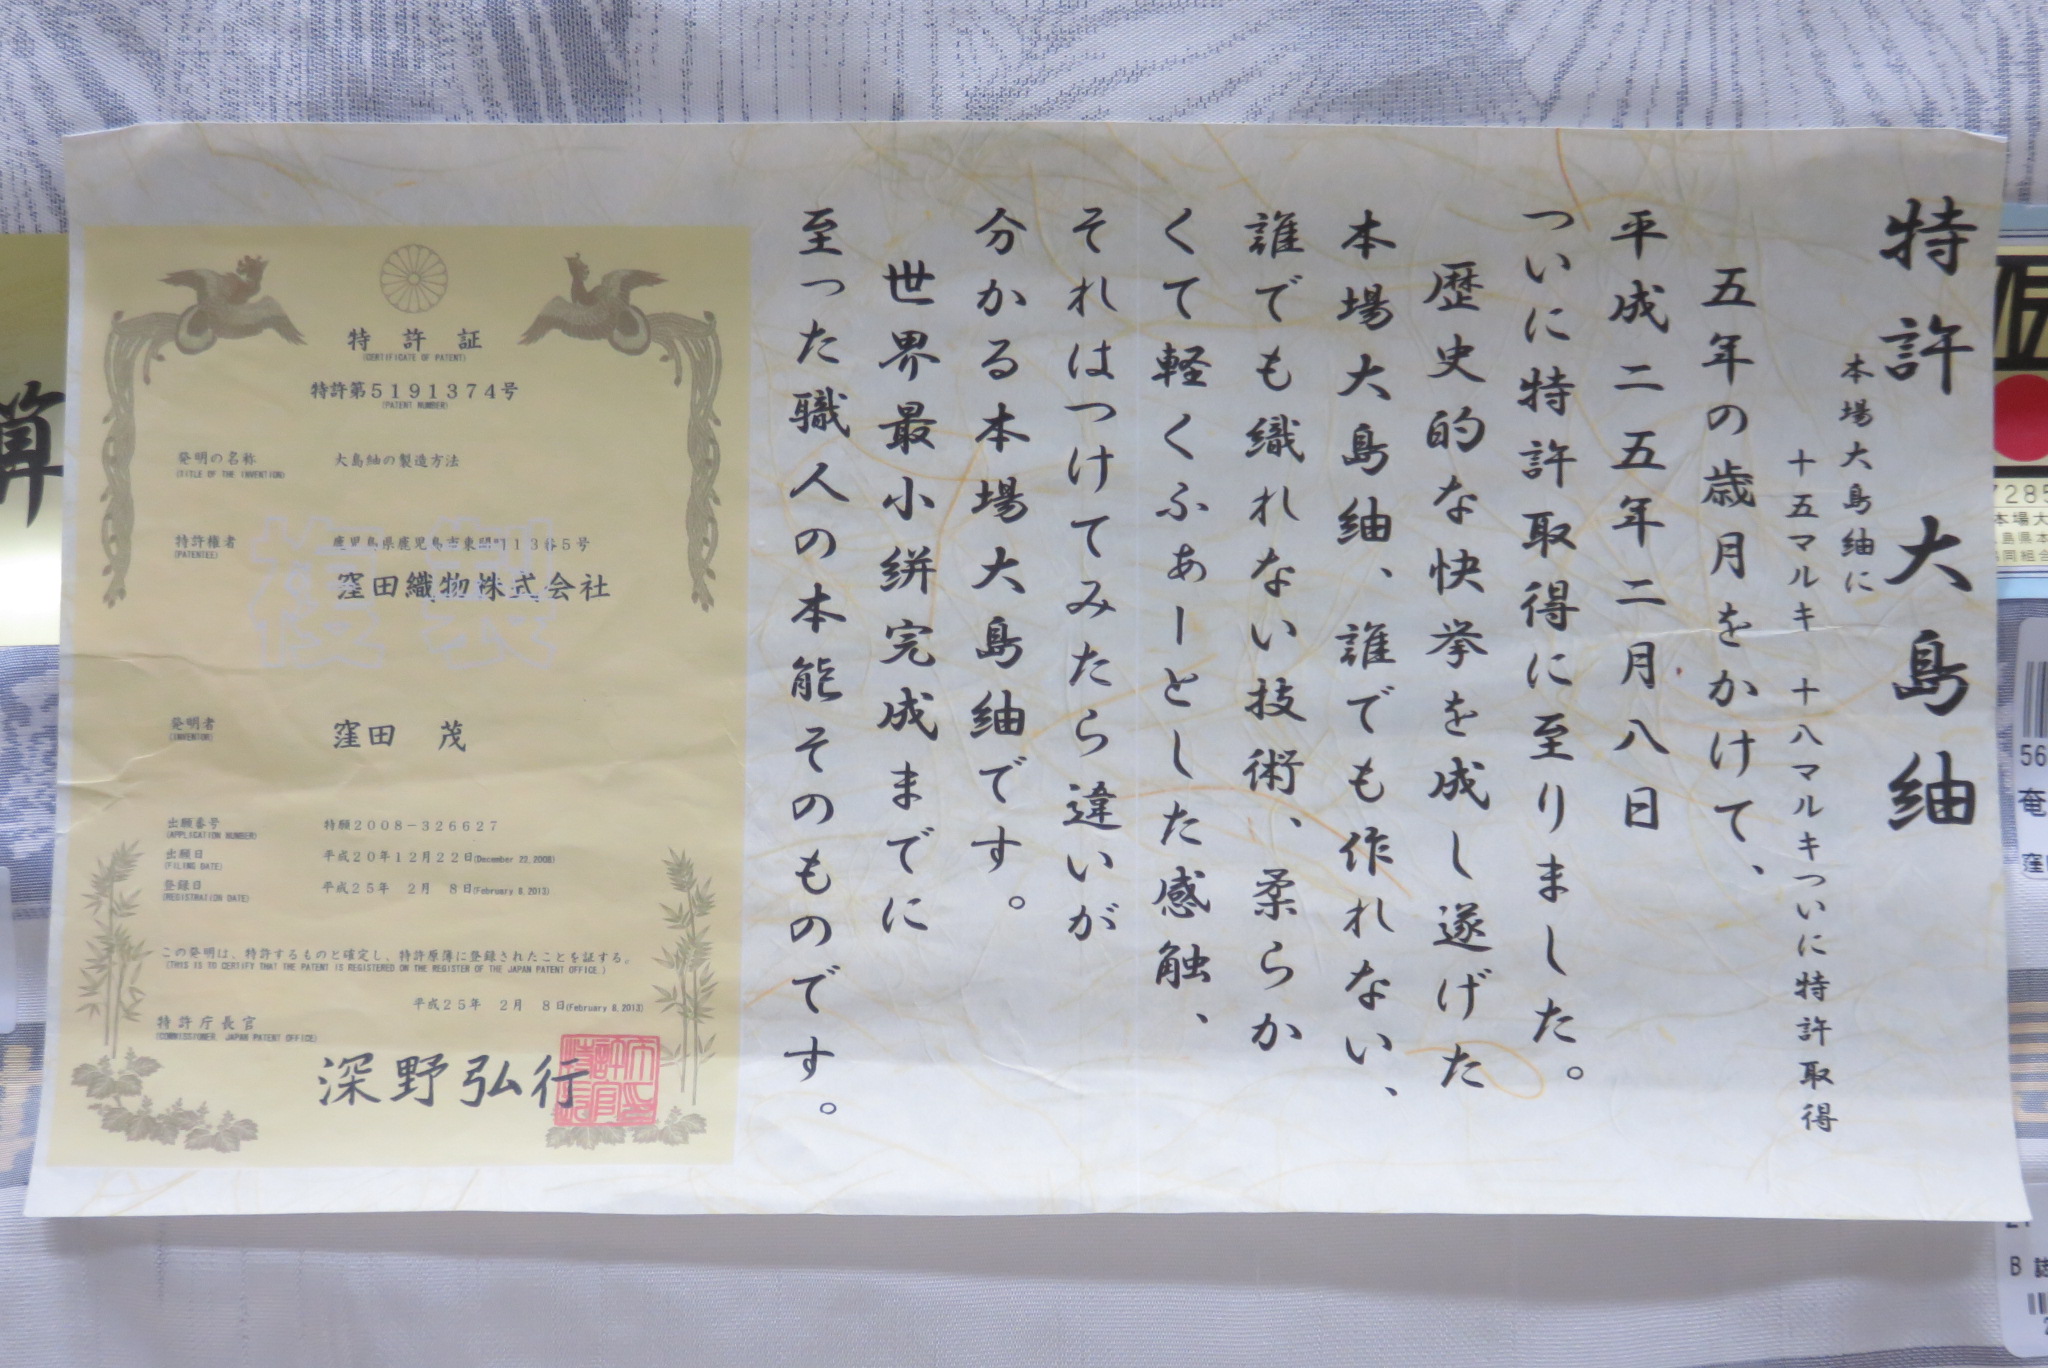 特許 大島紬
本場大島紬に
十五マルキ 十八マルキついに特許取得
五年の歳月をかけて、
平成二五年二月八日
ついに特許取得に至りました。
歴史的な快挙を成し遂げた
本場大島紬、誰でも作れない、
誰でも織れない技術、柔らか
くて軽くふぁーとした感触、
それはつけてみたら違いが
分かる本場大島紬です。
世界最小絣完成までに
至った職人の本能そのものです。
特許証
(CERTIFICATE OF PATENT)
特許第5191374号
(PATENT NUMBER)
発明の名称 大島紬の製造方法
(TITLE OF THE INVENTION)
特許権者 鹿児島県鹿児島市東開町13番5号
(PATENTEE)
窪田織物株式会社
複製
発明者 窪田 茂
(INVENTOR)
出願番号 特願2008-326627
(APPLICATION NUMBER)
出願日 平成20年12月22日(December 22, 2008)
(FILING DATE)
登録日 平成25年 2月 8日(February 8, 2013)
(REGISTRATION DATE)
この発明は、特許するものと確定し、特許原簿に登録されたことを証する。
(THIS IS TO CERTIFY THAT THE PATENT IS REGISTERED ON THE REGISTER OF THE JAPAN PATENT OFFICE.)
平成25年 2月 8日(February 8, 2013)
特許庁長官
(COMMISSIONER, JAPAN PATENT OFFICE)
深野弘行
算
7285
本場大
島県本
同組合
56
奄
窪
B